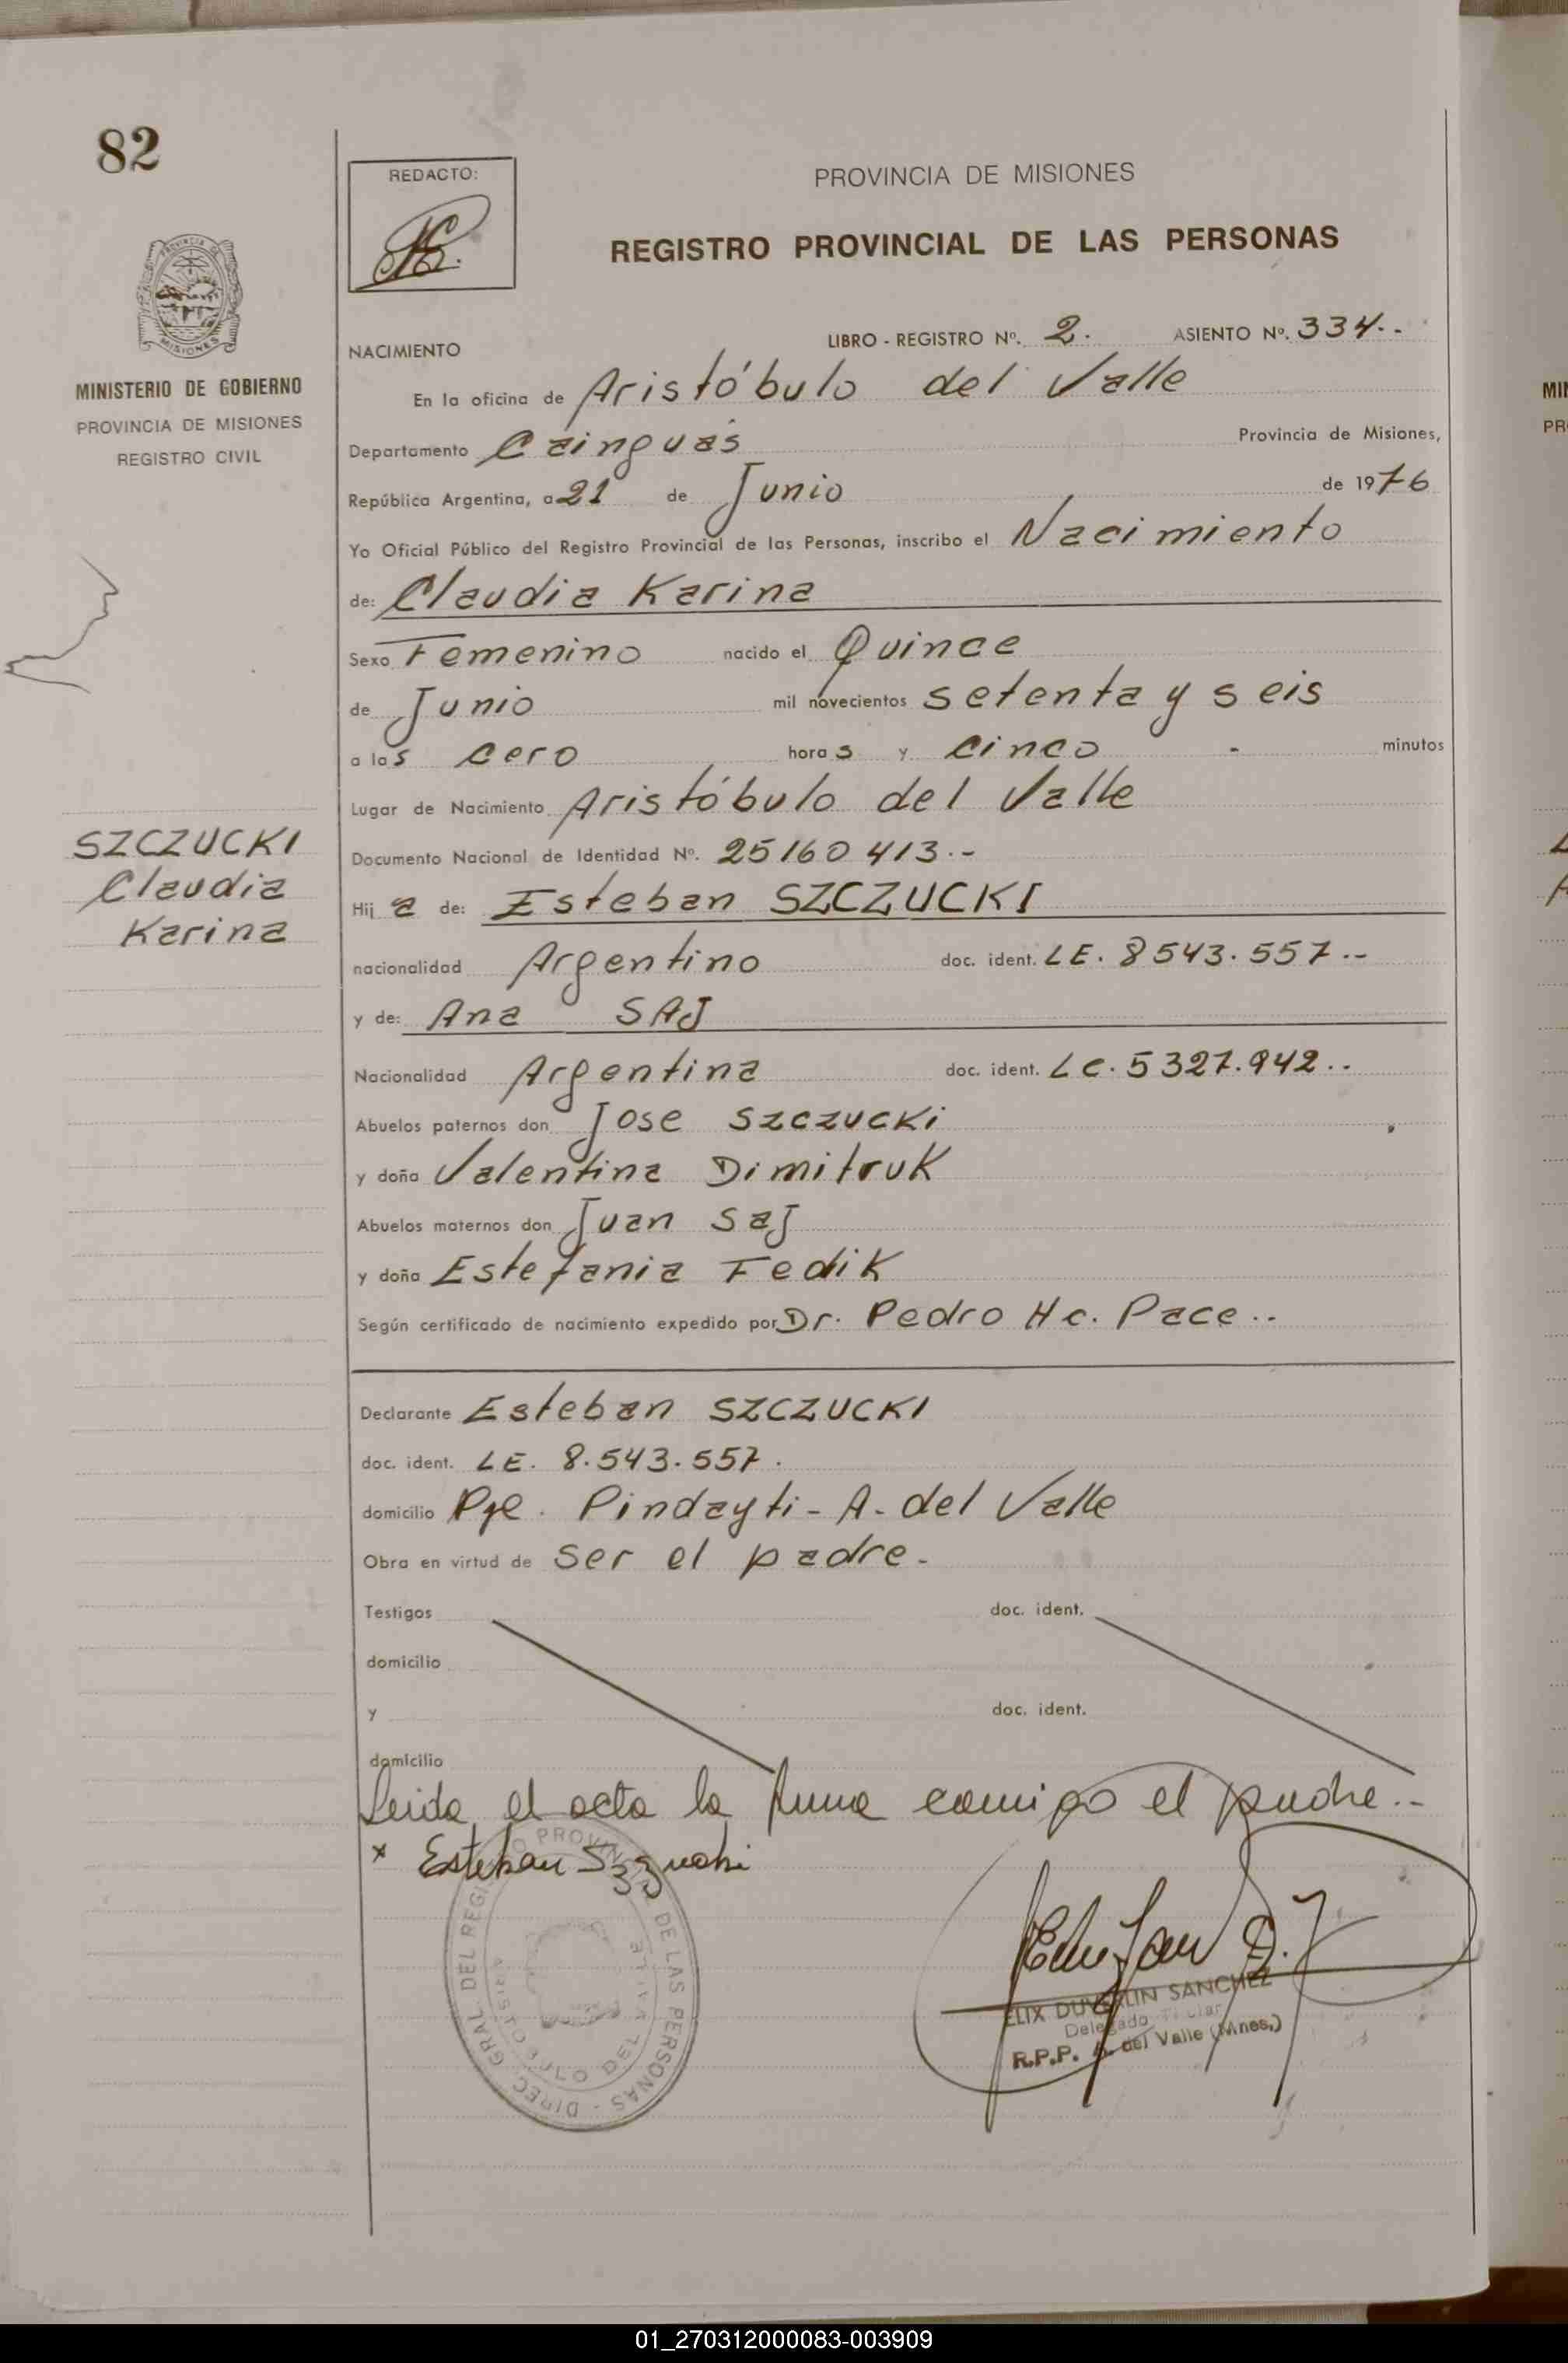 82
REDACTO:
PROVINCIA DE MISIONES
REGISTRO PROVINCIAL DE LAS PERSONAS
PROVINCIA DE
MISIONES
MINISTERIO DE GOBIERNO
PROVINCIA DE MISIONES
REGISTRO CIVIL
NACIMIENTO LIBRO - REGISTRO Nº. 2. ASIENTO Nº. 334.-
En la oficina de Aristóbulo del Valle
Departamento Cainguás Provincia de Misiones,
República Argentina, a 21 de Junio de 1976
Yo Oficial Público del Registro Provincial de las Personas, inscribo el Nacimiento
de: Claudia Karina
Sexo Femenino nacido el Quince
de Junio mil novecientos setenta y seis
a las cero horas y cinco - minutos
Lugar de Nacimiento Aristóbulo del Valle
SZCZUCKI
Claudia
Karina
Documento Nacional de Identidad Nº. 25160413.-
Hija de: Esteban SZCZUCKI
nacionalidad Argentino doc. ident. LE. 8543.557.-
y de: Ana SAJ
Nacionalidad Argentina doc. ident. LC. 5327.942..
Abuelos paternos don Jose Szczucki
y doña Valentina Dimitruk
Abuelos maternos don Juan Saj
y doña Estefania Fedik
Según certificado de nacimiento expedido por Dr. Pedro Hc. Pace..
Declarante Esteban SZCZUCKI
doc. ident. LE. 8.543.557.
domicilio Pje. Pindayti - A. del Valle
Obra en virtud de ser el padre.
Testigos doc. ident.
domicilio
y doc. ident.
domicilio
Leida el acta la firma conmigo el padre..
x Esteban
DIREC. GRAL DEL REGISTRO PROVINCIAL DE LAS PERSONAS
ARISTOBULO DEL VALLE
SANCHEZ
Delegado Titular
R.P.P. A. del Valle (Mnes.)
MIN
PR
01_270312000083-003909